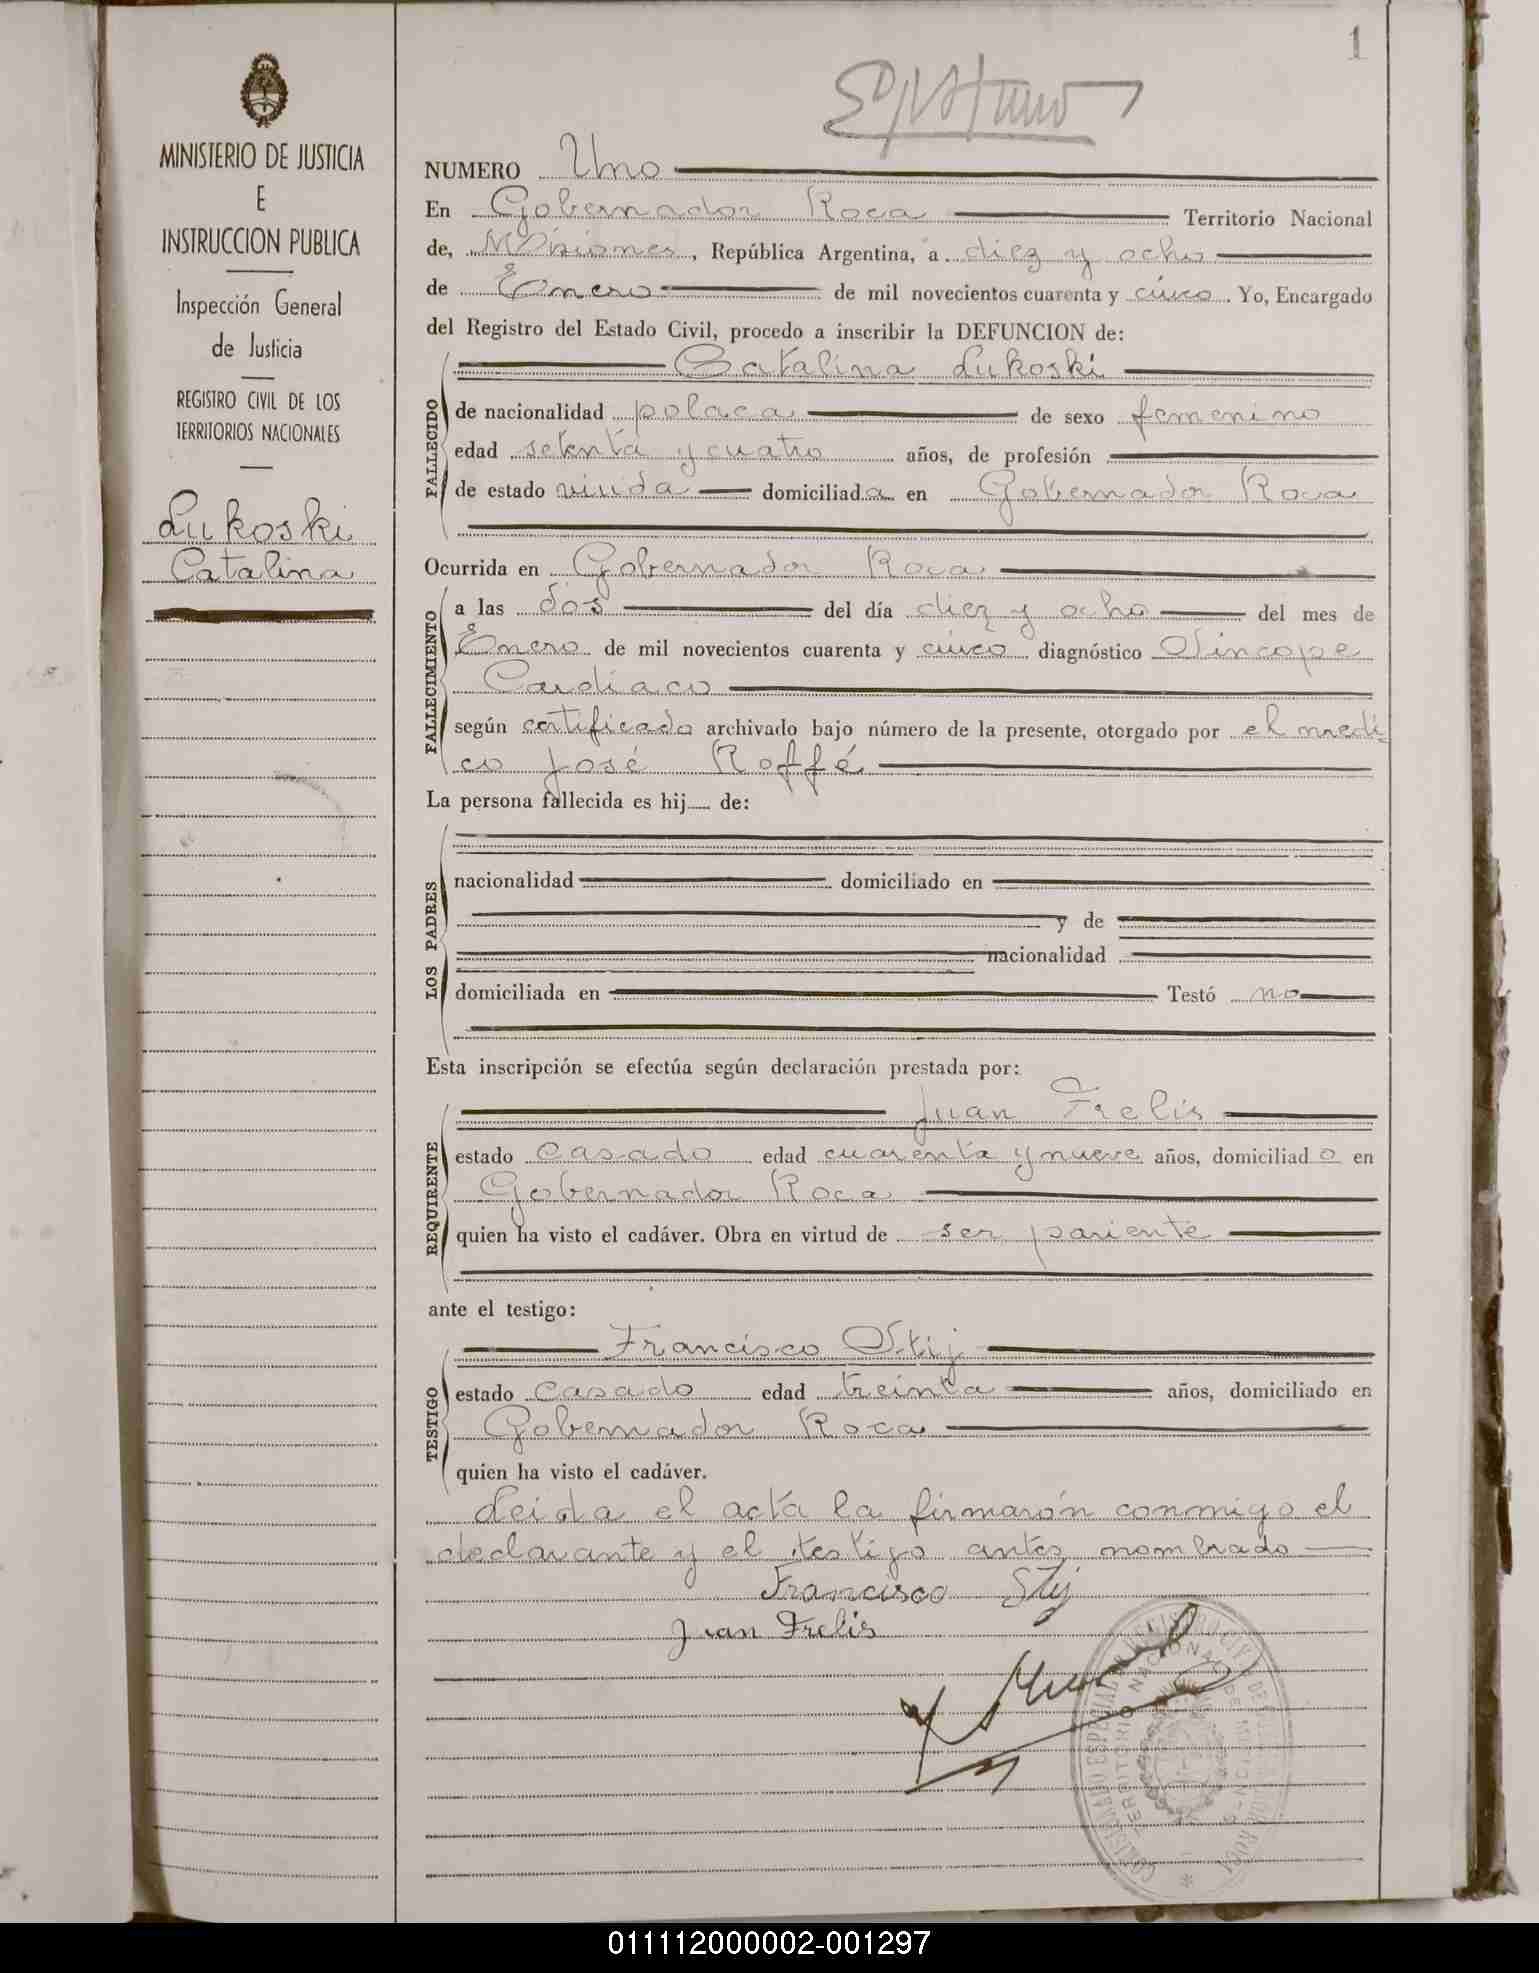 1
MINISTERIO DE JUSTICIA
E
INSTRUCCION PUBLICA
Inspección General
de Justicia
REGISTRO CIVIL DE LOS
TERRITORIOS NACIONALES
Lukoski
Catalina
NUMERO Uno
En Gobernador Roca Territorio Nacional
de, Misiones, República Argentina, a diez y ocho
de Enero de mil novecientos cuarenta y cinco. Yo, Encargado
del Registro del Estado Civil, procedo a inscribir la DEFUNCION de:
Catalina Lukoski
FALLECIDO
de nacionalidad polaca de sexo femenino
edad setenta y cuatro años, de profesión
de estado viuda domiciliada en Gobernador Roca
Ocurrida en Gobernador Roca
FALLECIMIENTO
a las dos del día diez y ocho del mes de
Enero de mil novecientos cuarenta y cinco diagnóstico Sincope
Cardiaco
según certificado archivado bajo número de la presente, otorgado por el medi-
co José Roffé
La persona fallecida es hij de:
LOS PADRES
nacionalidad domiciliado en
y de
nacionalidad
domiciliada en Testó no
Esta inscripción se efectúa según declaración prestada por:
Juan Frelis
REQUIRENTE
estado Casado edad cuarenta y nueve años, domiciliado en
Gobernador Roca
quien ha visto el cadáver. Obra en virtud de ser pariente
ante el testigo:
Francisco Stij
TESTIGO
estado Casado edad treinta años, domiciliado en
Gobernador Roca
quien ha visto el cadáver.
Leida el acta la firmarón conmigo el
declarante y el testigo antes nombrado
Francisco Stij
Juan Frelis
011112000002-001297